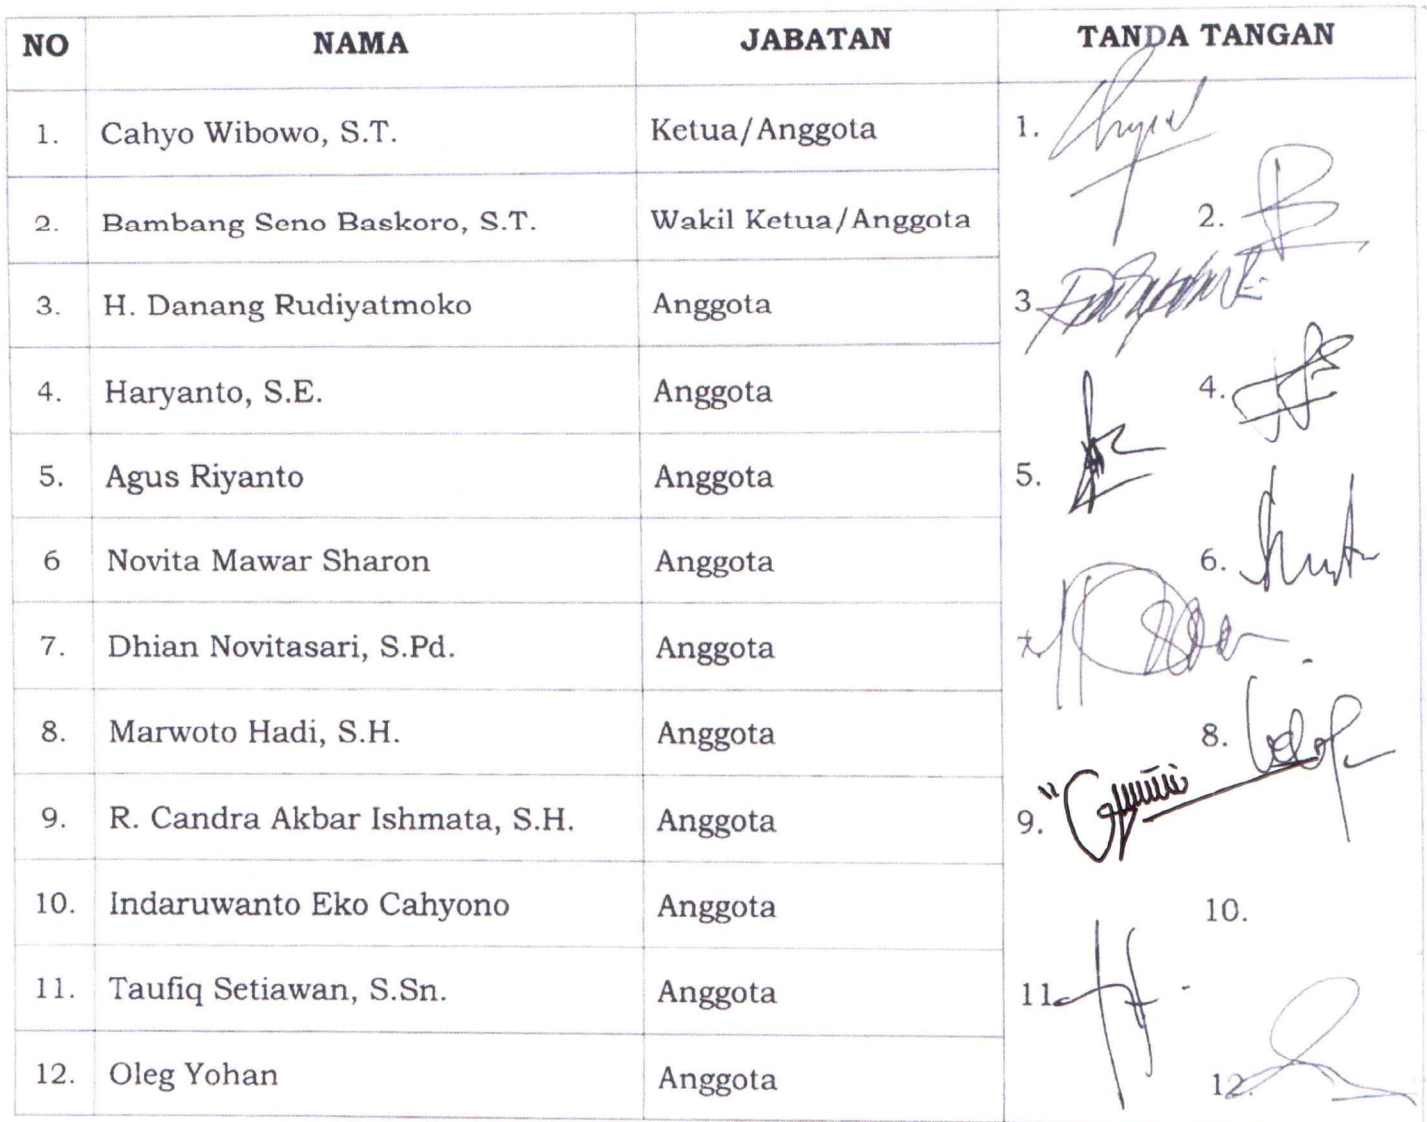 NO NAMA JABATAN TANDA TANGAN
1. Cahyo Wibowo, S.T. Ketua/Anggota 1.
2. Bambang Seno Baskoro, S.T. Wakil Ketua/Anggota 2.
3. H. Danang Rudiyatmoko Anggota 3
4. Haryanto, S.E. Anggota 4.
5. Agus Riyanto Anggota 5.
6 Novita Mawar Sharon Anggota 6.
7. Dhian Novitasari, S.Pd. Anggota 7.
8. Marwoto Hadi, S.H. Anggota 8.
9. R. Candra Akbar Ishmata, S.H. Anggota 9.
10. Indaruwanto Eko Cahyono Anggota 10.
11. Taufiq Setiawan, S.Sn. Anggota 11.
12. Oleg Yohan Anggota 12.